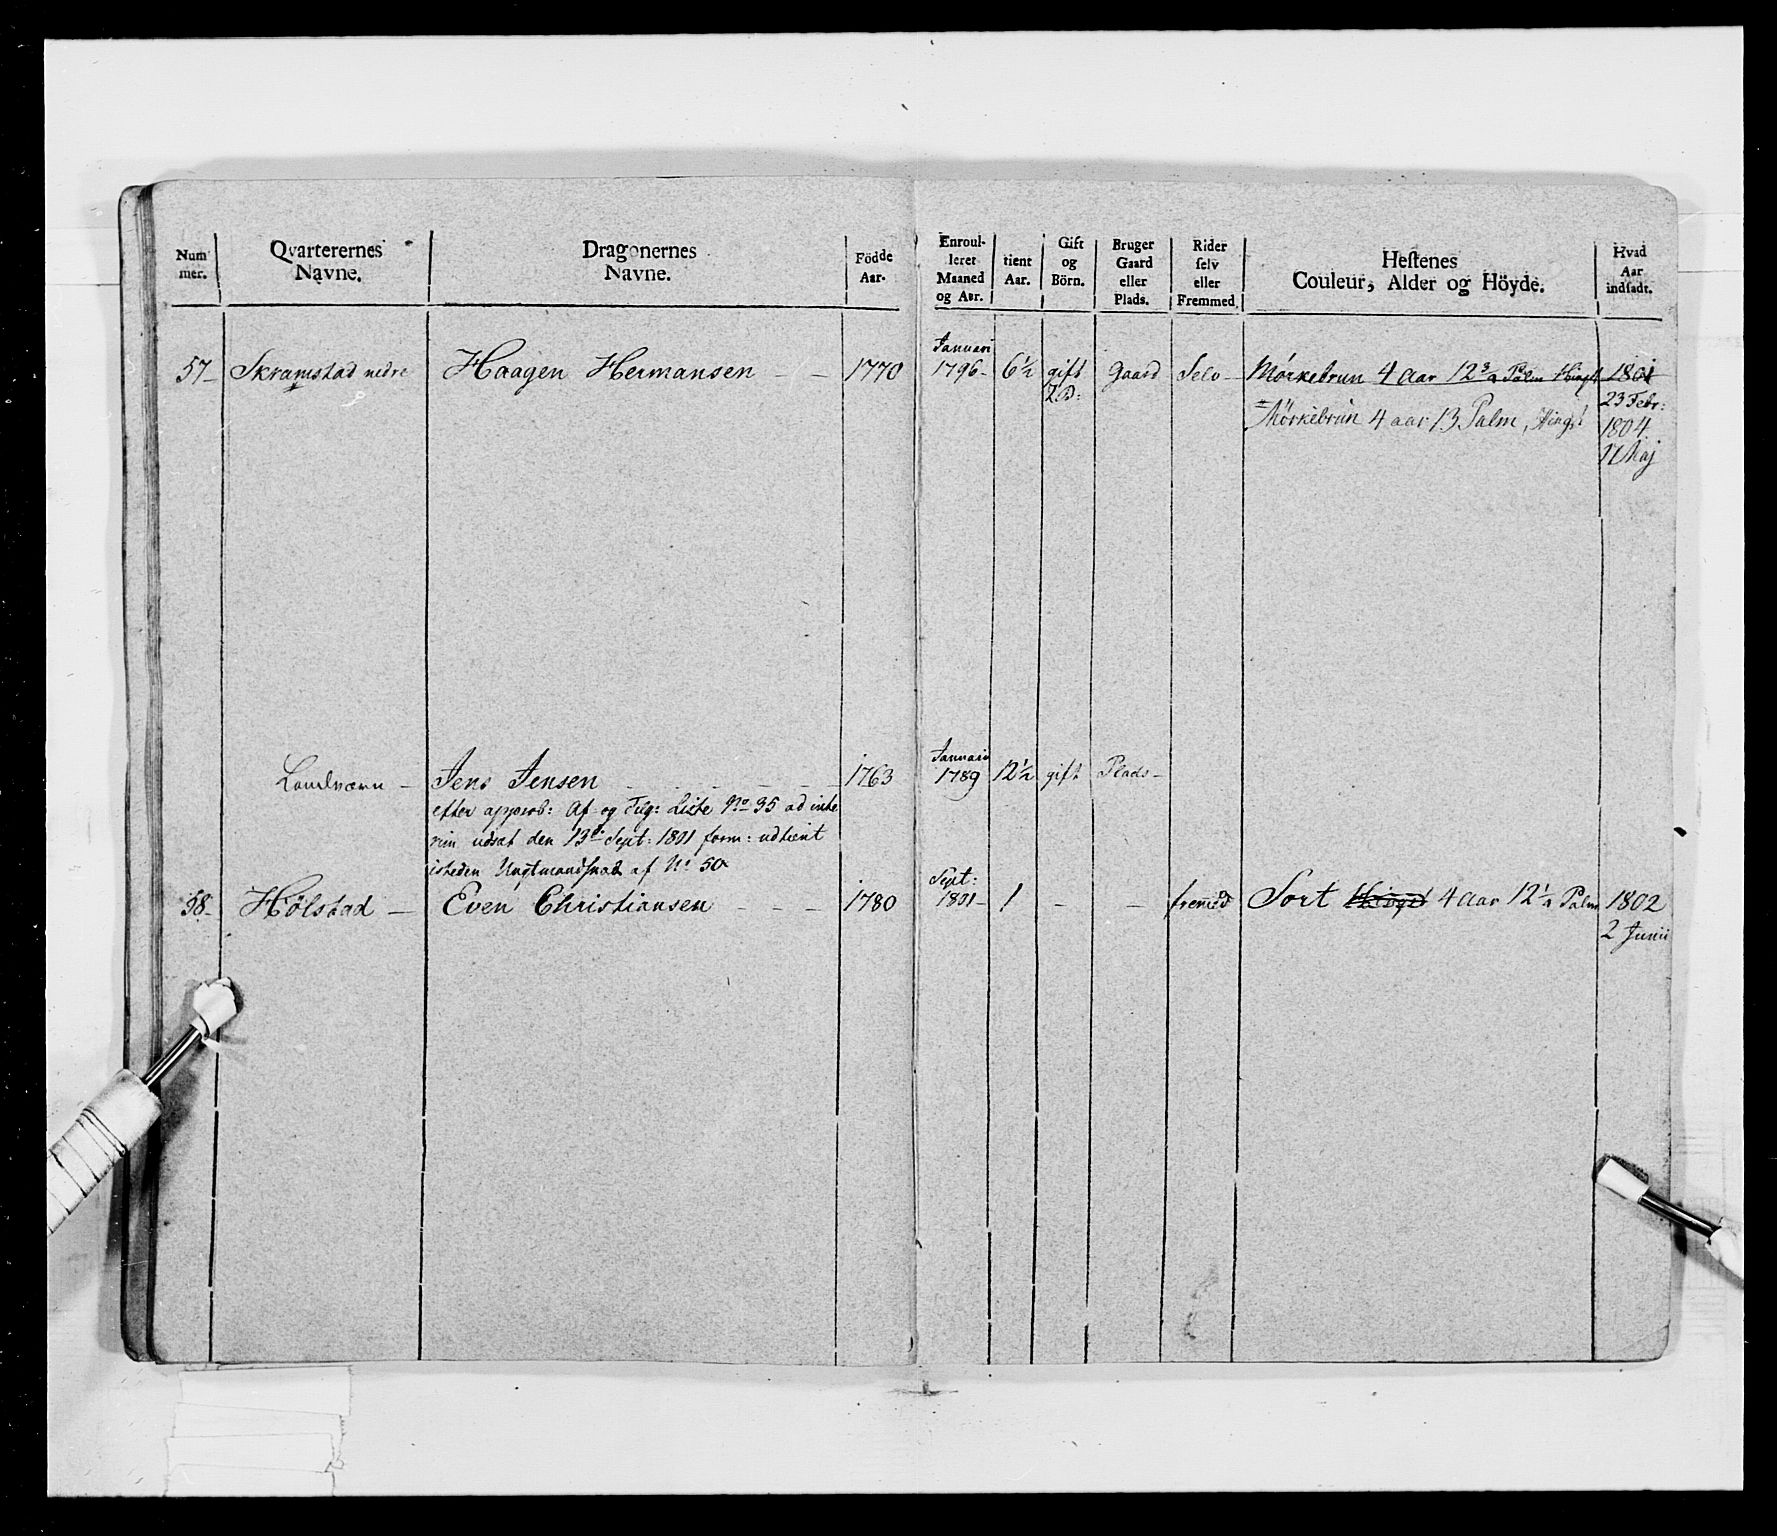 Num mer. Qvarterernes Navne. Dragonernes Navne. Födde Aar. Enroulleret Maaned og Aar. tient Aar. Gift og Börn. Bruger Gaard eller Plads. Rider selv eller Fremmed Hestenes Couleur, Alder og Höyde. Hvad Aar indsadt.
Januari
57- Skramstad nedre Haagen Hermansen - - 1770 1796- 6½ gift Gaard Selv - Mörkebrun 4 Aar 12¾ Palm Hingst 1801
2 B: 23 Febr:
Mörkebrun 4 aar 13 Palm, Hingst 1804
17 Maj
Januari
Landværn - Jens Jensen - - - - - 1763 1789 12½ gift Plads-
efter approb: Af- og Tilg: Liste No 35 ad inte
rim udsat den 13de Sept: 1801 form: udtient
isteden af No 50
Sept:
58- Hölstad - Even Christiansen - - - 1780 1801- 1 - - fremed Sort 4 Aar 12½ Palm 1802
2 Junii